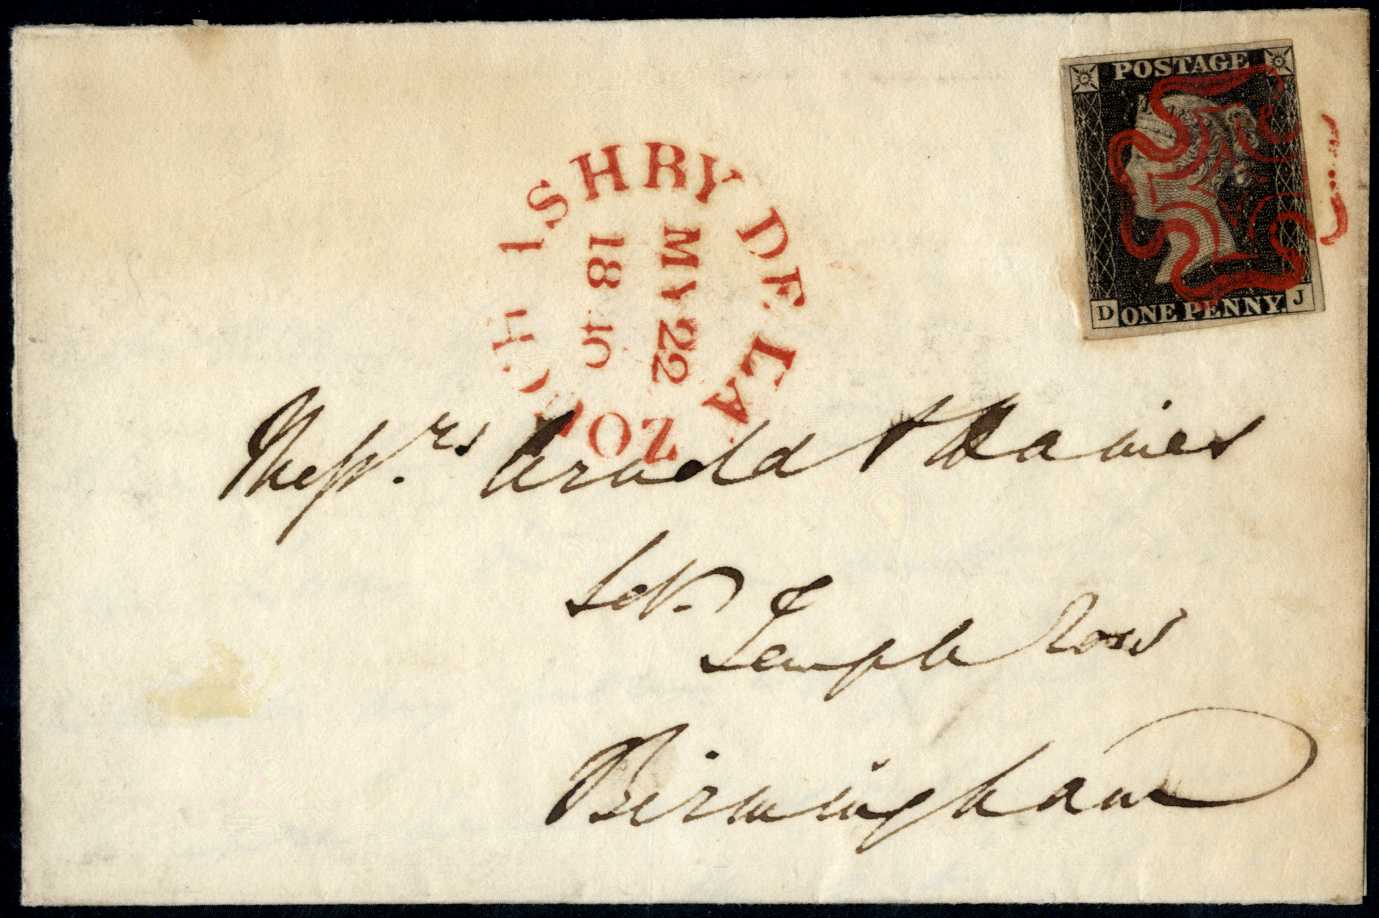 POSTAGE
D ONE PENNY. J
ASHBY DE LA ZOUCH
MY 22
1840
Messrs. Arnold & Haines
Solrs.
Temple Row
Birmingham